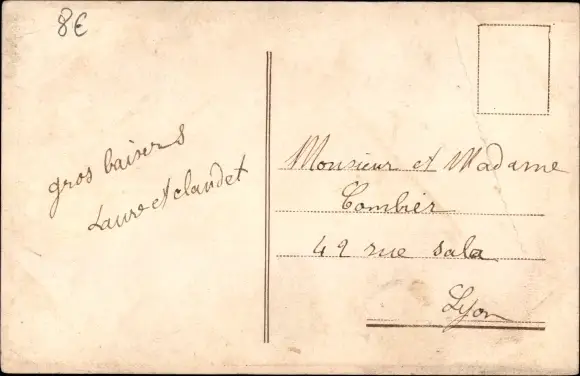 8€
gros baisers
Laure et claudet
Monsieur et Madame
Combier
42 rue sala
Lyon